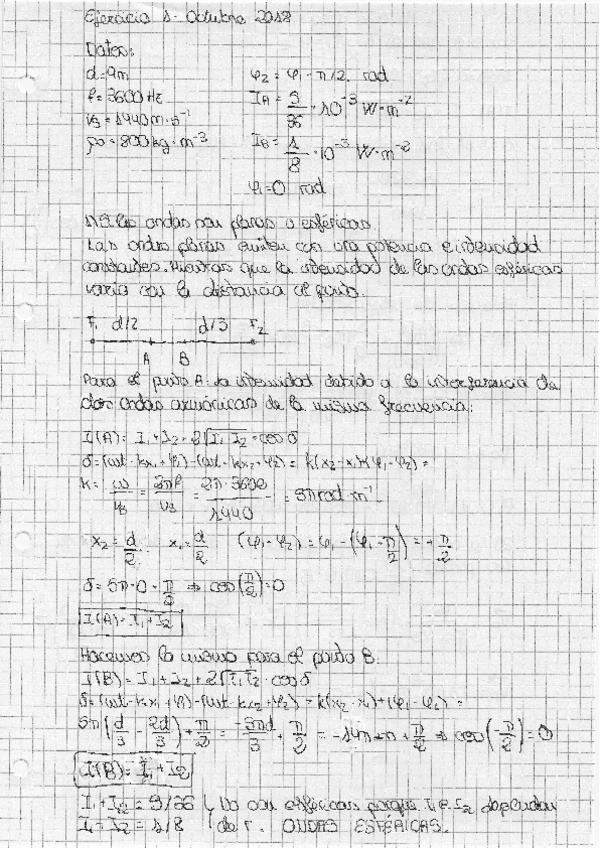 Ejercicio 1. Octubre 2018
Datos:
d=9m
f=3600Hz
v=1440m·s⁻¹
ρ=800kg·m⁻³
φ2=φ1-π/2 rad
IA= ·10⁻³W·m⁻²
IB=1/8·10⁻³W·m⁻²
φ1=0 rad
ondas son planas o esféricas
Las ondas planas emiten con una potencia e intensidad
constantes. Mientras que la intensidad de las ondas esféricas
varía con la distancia al
F1 d/2 d/3 F2
A B
Para el punto A: la intensidad debido a la interferencia de
dos ondas armónicas de la misma frecuencia:
I(A)=I1+I2 2√I1·I2·cosδ
δ=(ωt-kx1+φ1)-(ωt-kx2+φ2)=k(x2-x1)+(φ1-φ2)=
k= = 2πf = 2π·3600 =5π rad·m⁻¹
1440
x2=d/2 x1=d/2 (φ1-φ2)=φ1-(φ1-π/2)=+π/2
δ=5π·0 π/2 ⇒ cos(π/2)=0
I(A)=I1+I2
Hacemos lo mismo para el punto B.
I(B)=I1+I2+2√I1·I2·cosδ
δ=(ωt-kx1+φ1)-(ωt-kx2+φ2)=k(x2-x1)+(φ1-φ2)=
5π(d/3-2d/3)+π/2=-5πd/3+π/2=-14π-π+π/2 ⇒ cos(-π/2)=0
I(B)=I1+I2
I1+I2= No son esféricas porque I1 e I2 dependen
I1+I2=1/8 de r. ONDAS ESFÉRICAS.